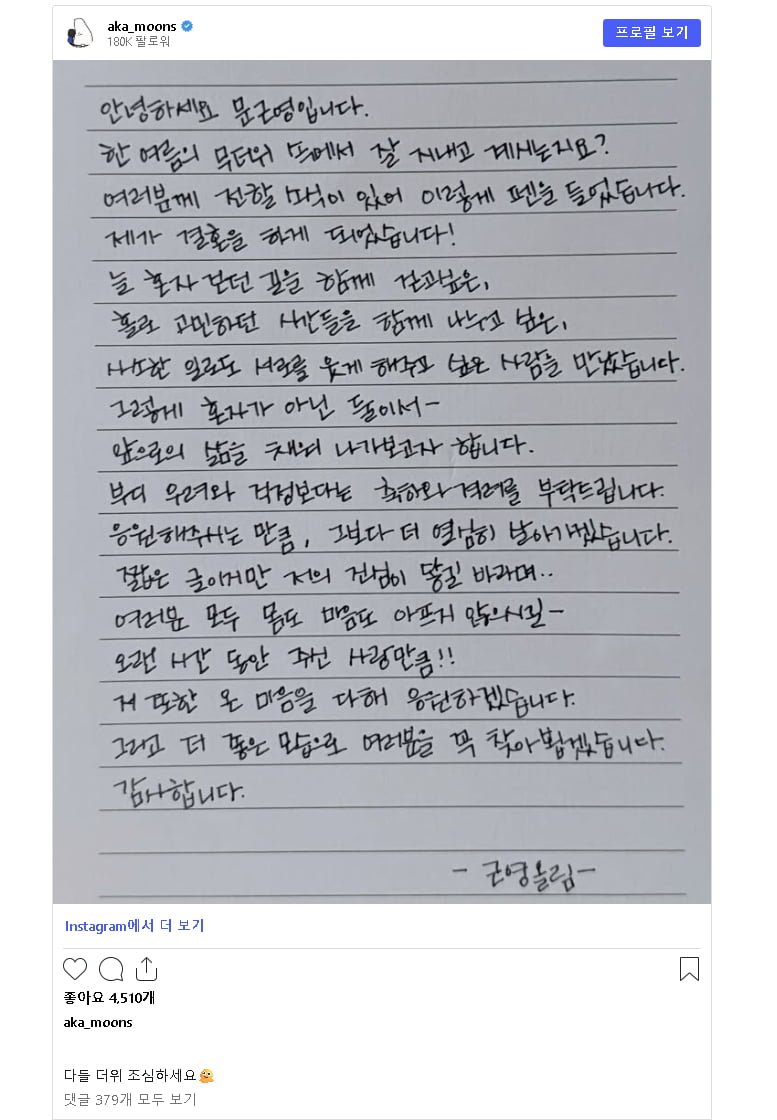 aka_moons
180K 팔로워
프로필 보기
안녕하세요 문근영입니다.
한 여름의 무더위 속에서 잘 지내고 계시는지요?
여러분께 전할 소식이 있어 이렇게 펜을 들었습니다.
제가 결혼을 하게 되었습니다!
늘 혼자 걷던 길을 함께 걷고싶은,
홀로 고민하던 시간들을 함께 나누고 싶은,
사소한 일로도 서로를 웃게 해주고 싶은 사람을 만났습니다.
그렇게 혼자가 아닌 둘이서-
앞으로의 삶을 채워 나가보고자 합니다.
부디 우려와 걱정보다는 축하와 격려를 부탁드립니다.
응원해주시는 만큼, 그보다 더 열심히 살아가겠습니다.
짧은 글이지만 저의 진심이 닿길 바라며..
여러분 모두 몸도 마음도 아프지 않으시길-
오랜 시간 동안 주신 사랑만큼!!
저 또한 온 마음을 다해 응원하겠습니다.
그리고 더 좋은 모습으로 여러분을 꼭 찾아뵙겠습니다.
감사합니다.
- 근영올림-
Instagram에서 더 보기
좋아요 4,510개
aka_moons
다들 더위 조심하세요
댓글 379개 모두 보기